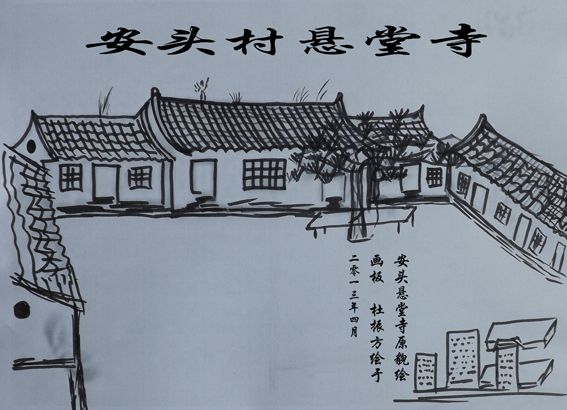 安头村悬堂寺
安头悬堂寺原貌绘
画板　杜振方绘于
二零一三年四月